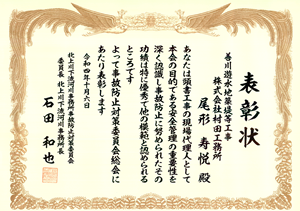 表彰状
善川遊水地築堤等工事
株式会社村田工務所
尾形 寿悦 殿
あなたは頭書工事の現場代理人として
本会の目的である安全管理の重要性を
深く認識し事故防止に努められたその
功績は特に優秀で他の模範と認められる
ところです
よって事故防止対策委員会総会に
あたり表彰します
令和四年十月六日
北上川下流河川事務所事故防止対策委員会
委員長 北上川下流河川事務所長
石田 和也